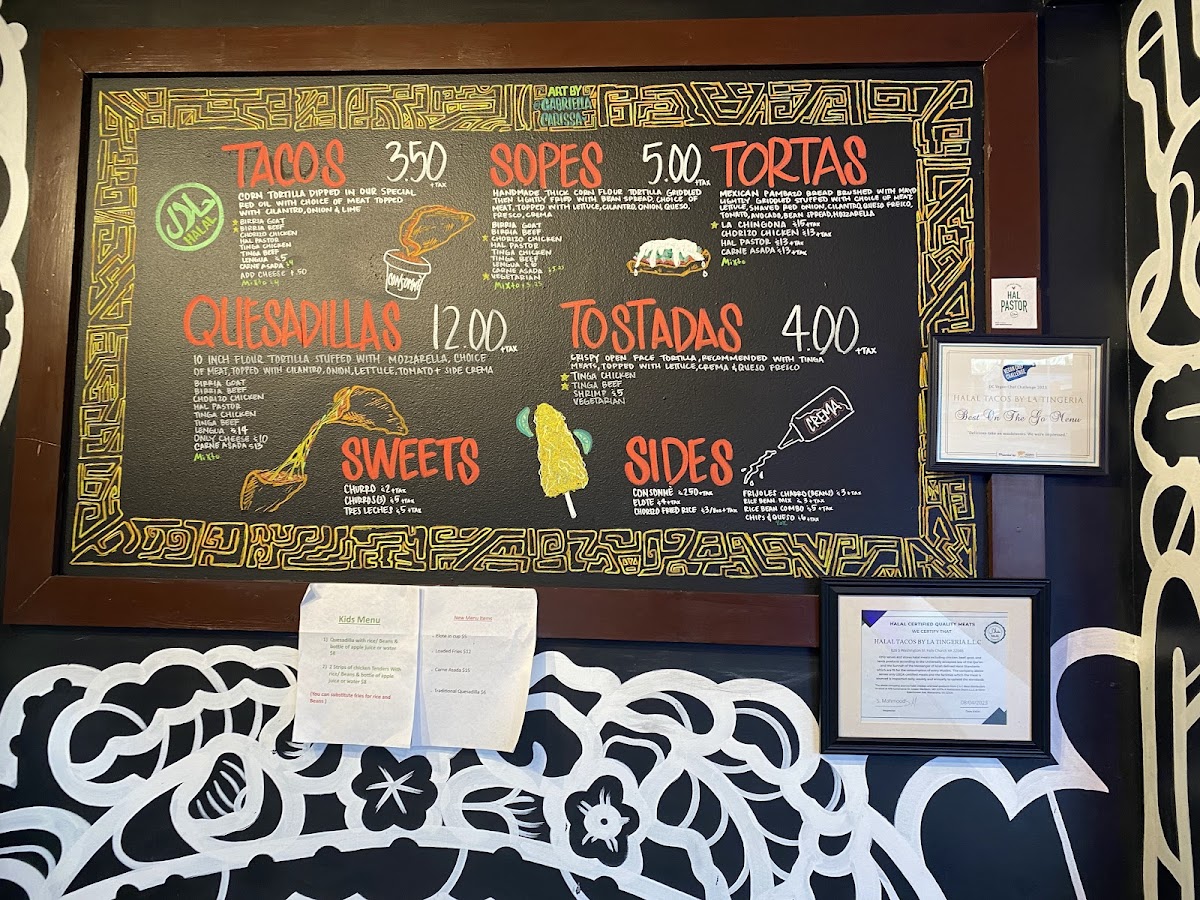 ART BY
GABRIELLA
CARISSA
TACOS 3.50 +TAX
CORN TORTILLA DIPPED IN OUR SPECIAL
RED OIL WITH CHOICE OF MEAT TOPPED
WITH CILANTRO, ONION & LIME
حلال
HALAL
BIRRIA GOAT
BIRRIA BEEF
CHORIZO CHICKEN
HAL PASTOR
TINGA CHICKEN
TINGA BEEF
LENGUA $5
CARNE ASADA $4
ADD CHEESE $.50
Mixto $4
CONSOMME
SOPES 5.00 +TAX
HANDMADE THICK CORN FLOUR TORTILLA GRIDDLED
THEN LIGHTLY FRIED WITH BEAN SPREAD, CHOICE OF
MEAT, TOPPED WITH LETTUCE, CILANTRO, ONION, QUESO,
FRESCO, CREMA
BIRRIA GOAT
BIRRIA BEEF
CHORIZO CHICKEN
HAL PASTOR
TINGA CHICKEN
TINGA BEEF
LENGUA $6
CARNE ASADA
VEGETARIAN
Mixto
TORTAS
MEXICAN PAMBAZO BREAD BRUSHED WITH MAYO
LIGHTLY GRIDDLED STUFFED WITH CHOICE OF MEAT,
LETTUCE, SHAVED RED ONION, CILANTRO, QUESO FRESCO,
TOMATO, AVOCADO, BEAN SPREAD, MOZZARELLA
LA CHINGONA $15 +TAX
CHORIZO CHICKEN $13 +TAX
HAL PASTOR $13 +TAX
CARNE ASADA $13 +TAX
Mixto
QUESADILLAS 12.00 +TAX
10 INCH FLOUR TORTILLA STUFFED WITH MOZZARELLA, CHOICE
OF MEAT, TOPPED WITH CILANTRO, ONION, LETTUCE, TOMATO + SIDE CREMA
BIRRIA GOAT
BIRRIA BEEF
CHORIZO CHICKEN
HAL PASTOR
TINGA CHICKEN
TINGA BEEF
LENGUA $14
ONLY CHEESE $10
CARNE ASADA $13
Mixto
TOSTADAS 4.00 +TAX
CRISPY OPEN FACE TORTILLA, RECOMMENDED WITH TINGA
MEATS, TOPPED WITH LETTUCE, CREMA & QUESO FRESCO
TINGA CHICKEN
TINGA BEEF
SHRIMP $5
VEGETARIAN
CREMA
SWEETS
CHURRO $2 +TAX
CHURROS(3) $5 +TAX
TRES LECHES $5 +TAX
SIDES
CONSOMMÉ $2.50 +TAX
ELOTE $4 +TAX
CHORIZO FRIED RICE $3/8oz +TAX
FRIJOLES CHARRO (BEANS) $3 +TAX
RICE BEAN MIX $3 +TAX
RICE BEAN COMBO $5 +TAX
CHIPS & QUESO $6 +TAX
HAL
PASTOR
HALAL TACOS BY LA TINGERIA
Best On The Go Menu
Kids Menu
1) Quesadilla with rice/ Beans &
bottle of apple juice or water
$8
2) 2 Strips of chicken Tenders With
rice/ Beans & bottle of apple
juice or water $8
(You can substitute fries for rice and
Beans )
New Menu Items
- Elote in cup $5
- Loaded Fries $12
- Carne Asada $15
- Traditional Quesadilla $6
HALAL CERTIFIED QUALITY MEATS
WE CERTIFY THAT
HALAL TACOS BY LA TINGERIA L.L.C
S. Mahmood